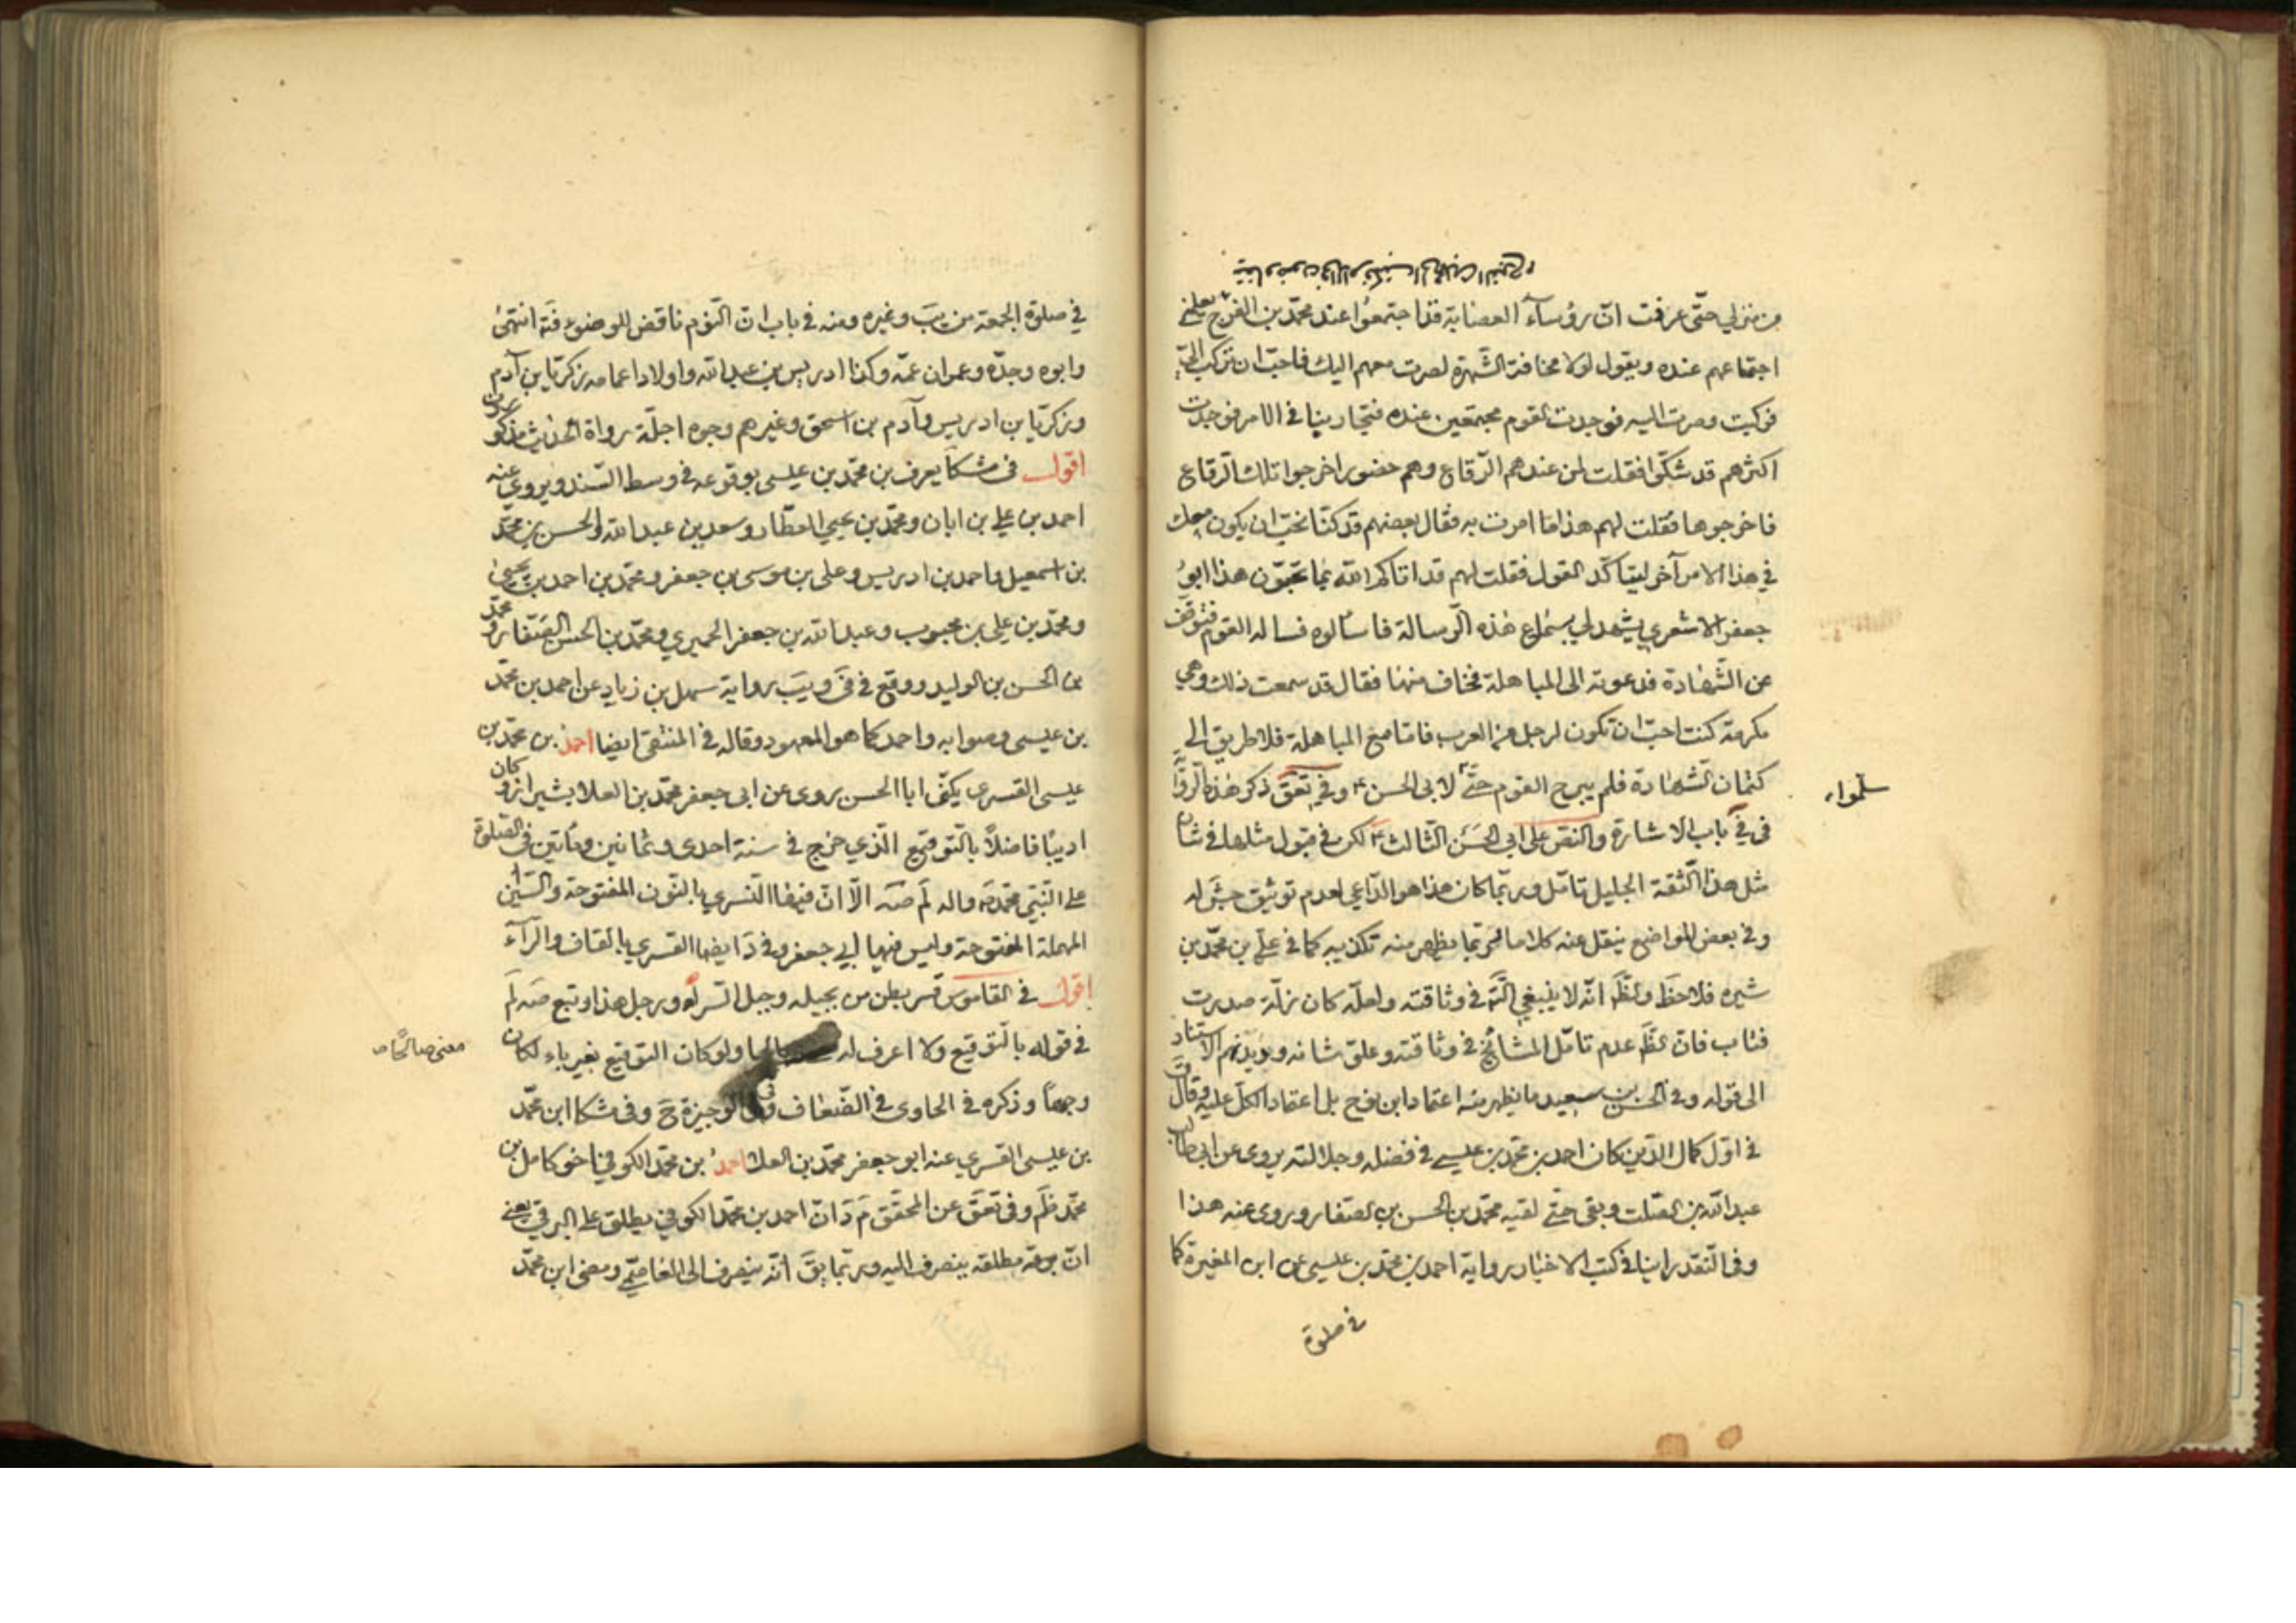 من منزلي حتّى عرفت انّ رؤسآء العصابة قد اجتمعوا عند محمّد بن الفرج يعلمني
اجتماعهم عنده ويقول لولا مخافة الشّهرة لصرت معهم اليك فاحبّ ان تركب الىّ
فركبت وصرت اليه فوجدت القوم مجتمعين عنده فتجارينا في الامر فوجدت
اكثرهم قد شكّوا فقلت لمن عندهم الرّقاع وهم حضور اخرجوا تلك الرّقاع
فاخرجوها فقلت لهم هذا ما امرت به فقال بعضهم قد كنّا نحبّ ان يكون معك
في هذا الامر آخر ليتأكّد القول فقلت لهم قد اتاكم الله بما تحبّون هذا ابو
جعفر الاشعري يشهد لي بسماع هذه الرّسالة فاسألوه فساله القوم فتوقّف
عن الشّهادة فدعوته الى المباهلة فخاف منها فقال قد سمعت ذلك وهي
مكرمة كنت احبّ ان تكون لرجل من العرب فامّا مع المباهلة فلا طريق الى
كتمان الشّهادة فلم يبرح القوم حتّى لابى الحسن ع وفي تعق ذكر هذه الرّواية
سلّموا
في في باب الاشارة والنصّ على ابي الحسن الثّالث ع لكن في قبول مثلها في شأن
مثل هذا الثّقة الجليل تامّل وربّما كان هذا هو الدّاعي لعدم توثيق جش له
وفي بعض المواضع ينقل عنه كلاما وربّما يظهر منه تكذيبه كما في علي بن محمّد بن
شيره فلاحظ والظّ انّه لا ينبغي في وثاقته ولعلّه كان زلّة صدرت
فتاب فانّ الظّ عدم تامّل المشائخ في وثاقته وعلوّ شانه وديدنهم الاستناد
الى قوله وفي الحسن بن سعيد ما يظهر منه اعتماد ابن نوح بل اعتماد الكلّ عليه وقال
في اوّل كمال الدّين كان احمد بن محمّد بن عيسى في فضله وجلالته يروى عن ابي طالب
عبد الله بن الصّلت وبقى حتّى لقيه محمّد بن الحسن بن الصفّار وروى عنه هذا
وفي النّقد راينا في كتب الاخبار رواية احمد بن محمّد بن عيسى عن ابن المغيرة كما
في صلوة
في صلوة الجمعة من يب وغيره ومنه في باب انّ النّوم ناقض للوضوء فتد انتهى
وابوه وجدّه وعمران عمّه وكذا ادريس بن عبد الله واولاد اعمامه زكريّا بن آدم
وزكريّا بن ادريس وآدم بن اسحق وغيرهم وجوه اجلّة رواة الحديث مذكورون
اقول في مشكا يعرف بن محمّد بن عيسى بوقوعه في وسط السّند ويروي عنه
احمد بن علي بن ابان ومحمّد بن يحيى العطّار وسعد بن عبد الله والحسن بن محمّد
بن اسمعيل واحمد بن ادريس وعلى بن موسى بن جعفر ومحمّد بن احمد بن يحيى
ومحمّد بن علي بن محبوب وعبد الله بن جعفر الحميري ومحمّد بن الحسن الصّفّار ومحمّد
بن الحسن بن الوليد ووقع في في ويب رواية سهل بن زياد عن احمد بن محمّد
بن عيسى وصوابه واحمد كما هو المعهود وقاله في المنتقى ايضا احمد بن محمّد بن
عيسى القسرى يكنّى ابا الحسن روى عن ابى جعفر محمّد بن العلا بشيراز وكان
اديبا فاضلاً بالتّوقيع الّذي خرج في سنة احدى وثمانين ومأتين في الصّلوة
على النّبيّ محمّد ص واله لم صه الّا انّ فيها النّسري بالنّون المفتوحة والسّين
المهملة المفتوحة وليس فيها ابي جعفر وفي د ايضا القسري بالقاف والرّآء
اقول في القاموس قسر بطن من بجيله وجبل السّراة ورجل هذا وتبع صه لم
في قوله بالتّوقيع ولا اعرف له ولو كان التّوقيع بغير باء لكان
معنى صالحا ص
وجها وذكره في الحاوى في الضّعاف وفي الوجيزة ح وفي مشكا ابن محمّد
بن عيسى القسري عنه ابو جعفر محمّد بن العلا احمد بن محمّد الكوفي اخو كامل بن
محمّد ظم وفي تعق عن المحقّق م د انّ احمد بن محمّد الكوفي يطلق على البرقي يعني
انّ مطلقه ينصرف اليه وربّما يق انّه ينصرف الى العاصمي ومضى ابن محمّد